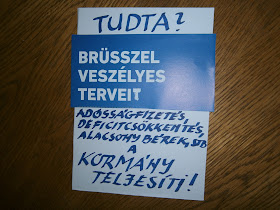 TUDTA?
BRÜSSZEL
VESZÉLYES
TERVEIT
ADÓSSÁGFIZETÉS,
DEFICITCSÖKKENTÉS,
ALACSONY BÉREK, STB
A
KORMÁNY
TELJESÍTI!